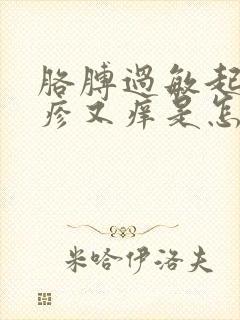 胳膊過敏起
疹又痒是怎
米哈伊洛夫